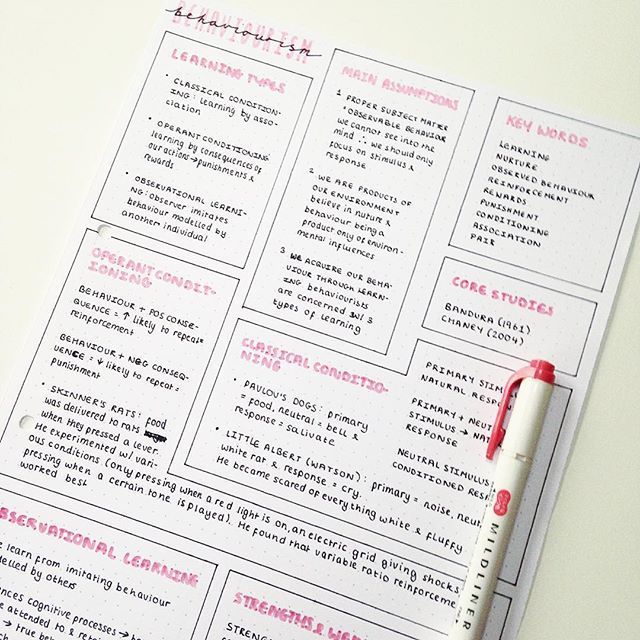 BEHAVIOURISM
behaviourism
LEARNING TYPES
• CLASSICAL CONDITION-
ING: learning by asso-
ciation
• OPERANT CONDITIONING
learning by consequences of
our actions → punishments &
rewards
• OBSERVATIONAL LEARNI-
NG: observer imitates
behaviour modelled by
another individual
MAIN ASSUMPTIONS
1 PROPER SUBJECT MATTER
= OBSERVABLE BEHAVIOUR
we cannot see into the
mind ∴ we should only
focus on stimulus &
response
2 WE ARE PRODUCTS OF
OUR ENVIRONMENT
believe in nurture &
behaviour being a
product only of environ-
mental influences
3 WE ACQUIRE OUR BEHA-
VIOUR THROUGH LEARN-
ING behaviourists
are concerned w/ 3
types of learning
KEY WORDS
LEARNING
NURTURE
OBSERVED BEHAVIOUR
REINFORCEMENT
REWARDS
PUNISHMENT
CONDITIONING
ASSOCIATION
PAIR
CORE STUDIES
BANDURA (1961)
CHANEY (2004)
OPERANT CONDIT-
IONING
BEHAVIOUR + POS CONSE-
QUENCE = ↑ likely to repeat =
reinforcement
BEHAVIOUR + NEG CONSEQ-
UENCE = ↓ likely to repeat =
punishment
• SKINNER'S RATS: food
was delivered to rats
when they pressed a lever.
He experimented w/ vari-
ous conditions (only pressing when a red light is on, an electric grid giving shocks,
pressing when a certain tone is played). He found that variable ratio reinforcement
worked best
CLASSICAL CONDITIO-
NING
• PAVLOV'S DOGS: primary
= food, neutral = bell &
response = salivate
• LITTLE ALBERT (WATSON): primary = noise, neutral
white rat & response = cry.
He became scared of everything white & fluffy
PRIMARY
NATURAL
PRIMARY +
STIMULUS →
RESPONSE
NEUTRAL STIMULUS
CONDITIONED
OBSERVATIONAL LEARNING
learn from imitating behaviour
modelled by others
cognitive processes →
attended to &
→ true
STRENGTHS &
MILDLINER